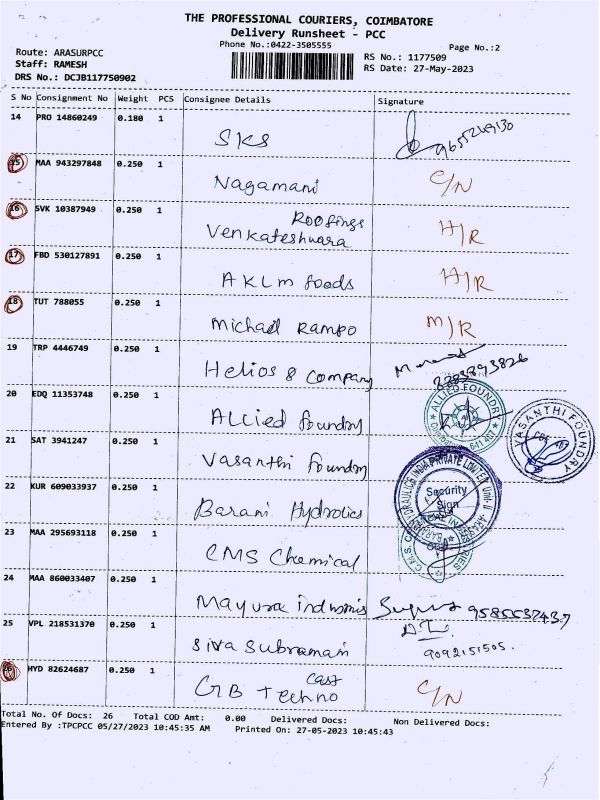 THE PROFESSIONAL COURIERS, COIMBATORE
Delivery Runsheet - PCC
Phone No.:0422-3505555
Page No.:2
Route: ARASURPCC
Staff: RAMESH
DRS No.: DCJB117750902
RS No.: 1177509
RS Date: 27-May-2023
S No Consignment No Weight PCS Consignee Details Signature
14 PRO 14860249 0.180 1 SKS
15 MAA 943297848 0.250 1 Nagamani C/N
16 SVK 10387949 0.250 1 Venkateshwara Roofings H/R
17 FBD 530127891 0.250 1 AKLM foods H/R
18 TUT 788055 0.250 1 Michael Rampo M/R
19 TRP 4446749 0.250 1 Helios & Company
20 EDQ 11353748 0.250 1 Allied foundry ALLIED FOUNDRY
21 SAT 3941247 0.250 1 Vasanthi foundry VASANTHI FOUNDRY
22 KUR 609033937 0.250 1 Barani Hydrolics Security Sign
23 MAA 295693118 0.250 1 CMS Chemical
24 MAA 860033407 0.250 1 Mayura industries
25 VPL 218531370 0.250 1 Siva Subramani 9092151505.
26 HYD 82624687 0.250 1 GB Techno Cast C/N
Total No. Of Docs: 26 Total COD Amt: 0.00 Delivered Docs: Non Delivered Docs:
Entered By :TPCPCC 05/27/2023 10:45:35 AM Printed On: 27-05-2023 10:45:43